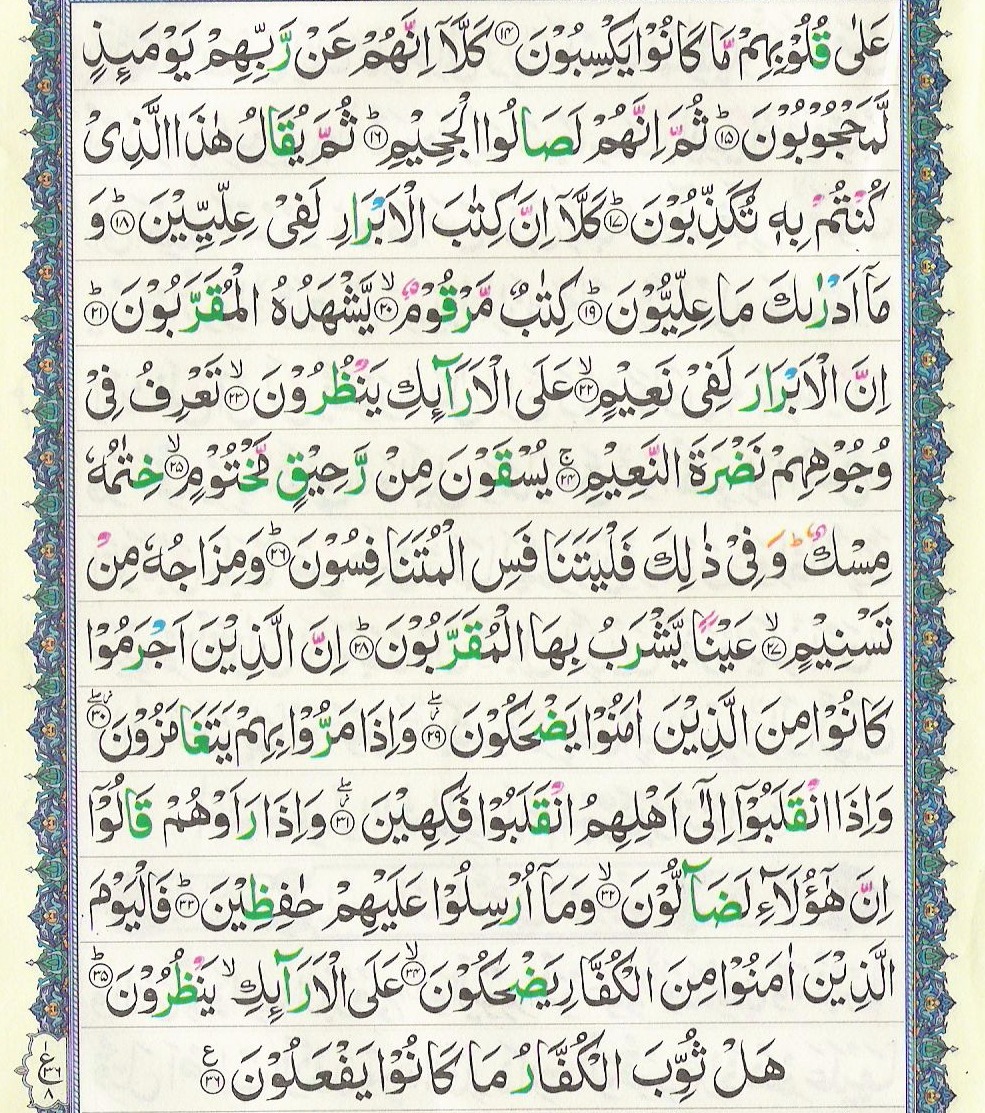 عَلٰى قُلُوْبِهِمْ مَّا كَانُوْا يَكْسِبُوْنَ ﴿۱۴﴾ كَلَّاۤ اِنَّهُمْ عَنْ رَّبِّهِمْ يَوْمَىِٕذٍ
لَّمَحْجُوْبُوْنَ ؕ﴿۱۵﴾ ثُمَّ اِنَّهُمْ لَصَالُوا الْجَحِيْمِ ؕ﴿۱۶﴾ ثُمَّ يُقَالُ هٰذَا الَّذِىْ
كُنْتُمْ بِهٖ تُكَذِّبُوْنَ ؕ﴿۱۷﴾ كَلَّاۤ اِنَّ كِتٰبَ الْاَبْرَارِ لَفِىْ عِلِّيِّيْنَ ؕ﴿۱۸﴾ وَ
مَاۤ اَدْرٰىكَ مَا عِلِّيُّوْنَ ؕ﴿۱۹﴾ كِتٰبٌ مَّرْقُوْمٌ ۙ﴿۲۰﴾ يَّشْهَدُهُ الْمُقَرَّبُوْنَ ؕ﴿۲۱﴾
اِنَّ الْاَبْرَارَ لَفِىْ نَعِيْمٍ ۙ﴿۲۲﴾ عَلَى الْاَرَآىِٕكِ يَنْظُرُوْنَ ۙ﴿۲۳﴾ تَعْرِفُ فِىْ
وُجُوْهِهِمْ نَضْرَةَ النَّعِيْمِ ۚ﴿۲۴﴾ يُسْقَوْنَ مِنْ رَّحِيْقٍ مَّخْتُوْمٍ ۙ﴿۲۵﴾ خِتٰمُهٗ
مِسْكٌ ؕ وَ فِىْ ذٰلِكَ فَلْيَتَنَافَسِ الْمُتَنَافِسُوْنَ ؕ﴿۲۶﴾ وَمِزَاجُهٗ مِنْ
تَسْنِيْمٍ ۙ﴿۲۷﴾ عَيْنًا يَّشْرَبُ بِهَا الْمُقَرَّبُوْنَ ؕ﴿۲۸﴾ اِنَّ الَّذِيْنَ اَجْرَمُوْا
كَانُوْا مِنَ الَّذِيْنَ اٰمَنُوْا يَضْحَكُوْنَ ﴿۲۹﴾ وَاِذَا مَرُّوْا بِهِمْ يَتَغَامَزُوْنَ ﴿۳۰﴾
وَاِذَا انْقَلَبُوْۤا اِلٰٓى اَهْلِهِمُ انْقَلَبُوْا فَكِهِيْنَ ﴿۳۱﴾ وَاِذَا رَاَوْهُمْ قَالُوْۤا
اِنَّ هٰٓؤُلَآءِ لَضَآلُّوْنَ ۙ﴿۳۲﴾ وَمَاۤ اُرْسِلُوْا عَلَيْهِمْ حٰفِظِيْنَ ؕ﴿۳۳﴾ فَالْيَوْمَ
الَّذِيْنَ اٰمَنُوْا مِنَ الْكُفَّارِ يَضْحَكُوْنَ ۙ﴿۳۴﴾ عَلَى الْاَرَآىِٕكِ ۙ يَنْظُرُوْنَ ؕ﴿۳۵﴾
هَلْ ثُوِّبَ الْكُفَّارُ مَا كَانُوْا يَفْعَلُوْنَ ﴿۳۶﴾ ع
ع ۱ ۳۶ ۸